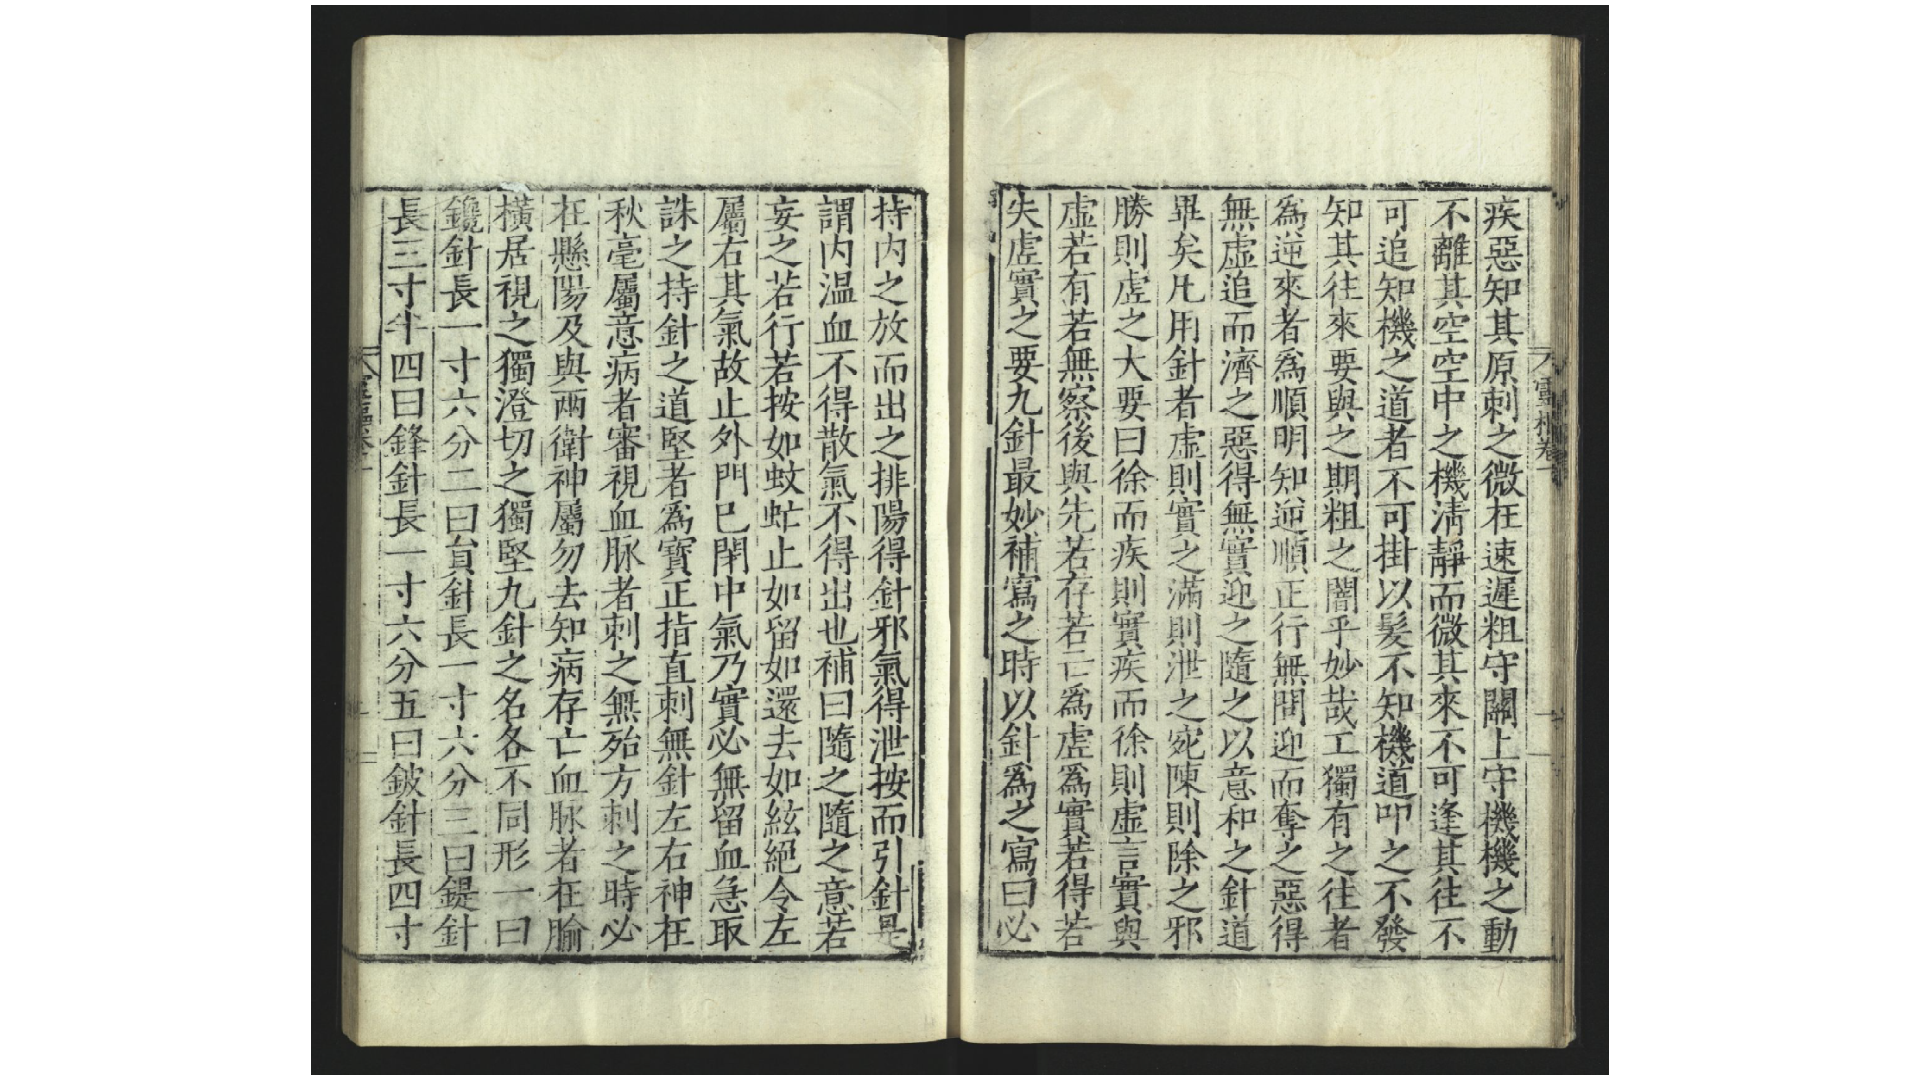 疾惡知其原刺之微在速遲粗守關上守機機之動
不離其空空中之機清靜而微其來不可逢其往不
可追知機之道者不可掛以髮不知機道叩之不發
知其往來要與之期粗之闇乎妙哉工獨有之往者
為逆來者為順明知逆順正行無問迎而奪之惡得
無虛追而濟之惡得無實迎之隨之以意和之針道
畢矣凡用針者虛則實之滿則泄之宛陳則除之邪
勝則虛之大要曰徐而疾則實疾而徐則虛言實與
虛若有若無察後與先若存若亡為虛為實若得若
失虛實之要九針最妙補寫之時以針為之寫曰必
持内之放而出之排陽得針邪氣得泄按而引針是
謂内温血不得散氣不得出也補曰隨之隨之意若
妄之若行若按如蚊虻止如留如還去如絃絕令左
屬右其氣故止外門已閉中氣乃實必無留血急取
誅之持針之道堅者為寶正指直刺無針左右神在
秋毫屬意病者審視血脉者刺之無殆方刺之時必
在懸陽及與兩衛神屬勿去知病存亡血脉者在腧
橫居視之獨澄切之獨堅九針之名各不同形一曰
鑱針長一寸六分二曰員針長一寸六分三曰鍉針
長三寸半四曰鋒針長一寸六分五曰鈹針長四寸
靈樞卷一